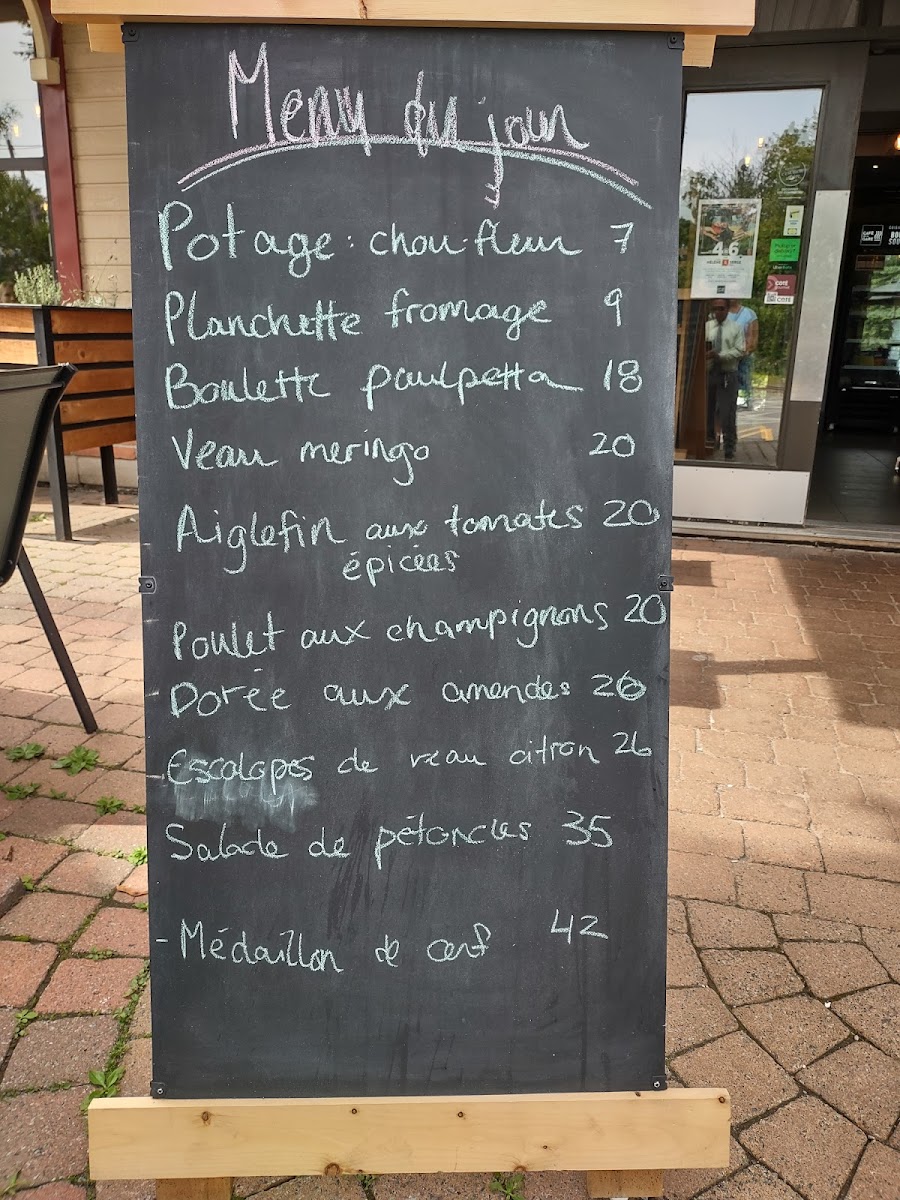 Menu du jour
Potage: chou-fleur 7
Planchette fromage 9
Boulette paulpetta 18
Veau meringo 20
Aiglefin aux tomates 20
épicées
Poulet aux champignons 20
Dorée aux amendes 26
Escalopes de veau citron 26
Salade de pétoncles 35
- Médaillon de cerf 42
4.6